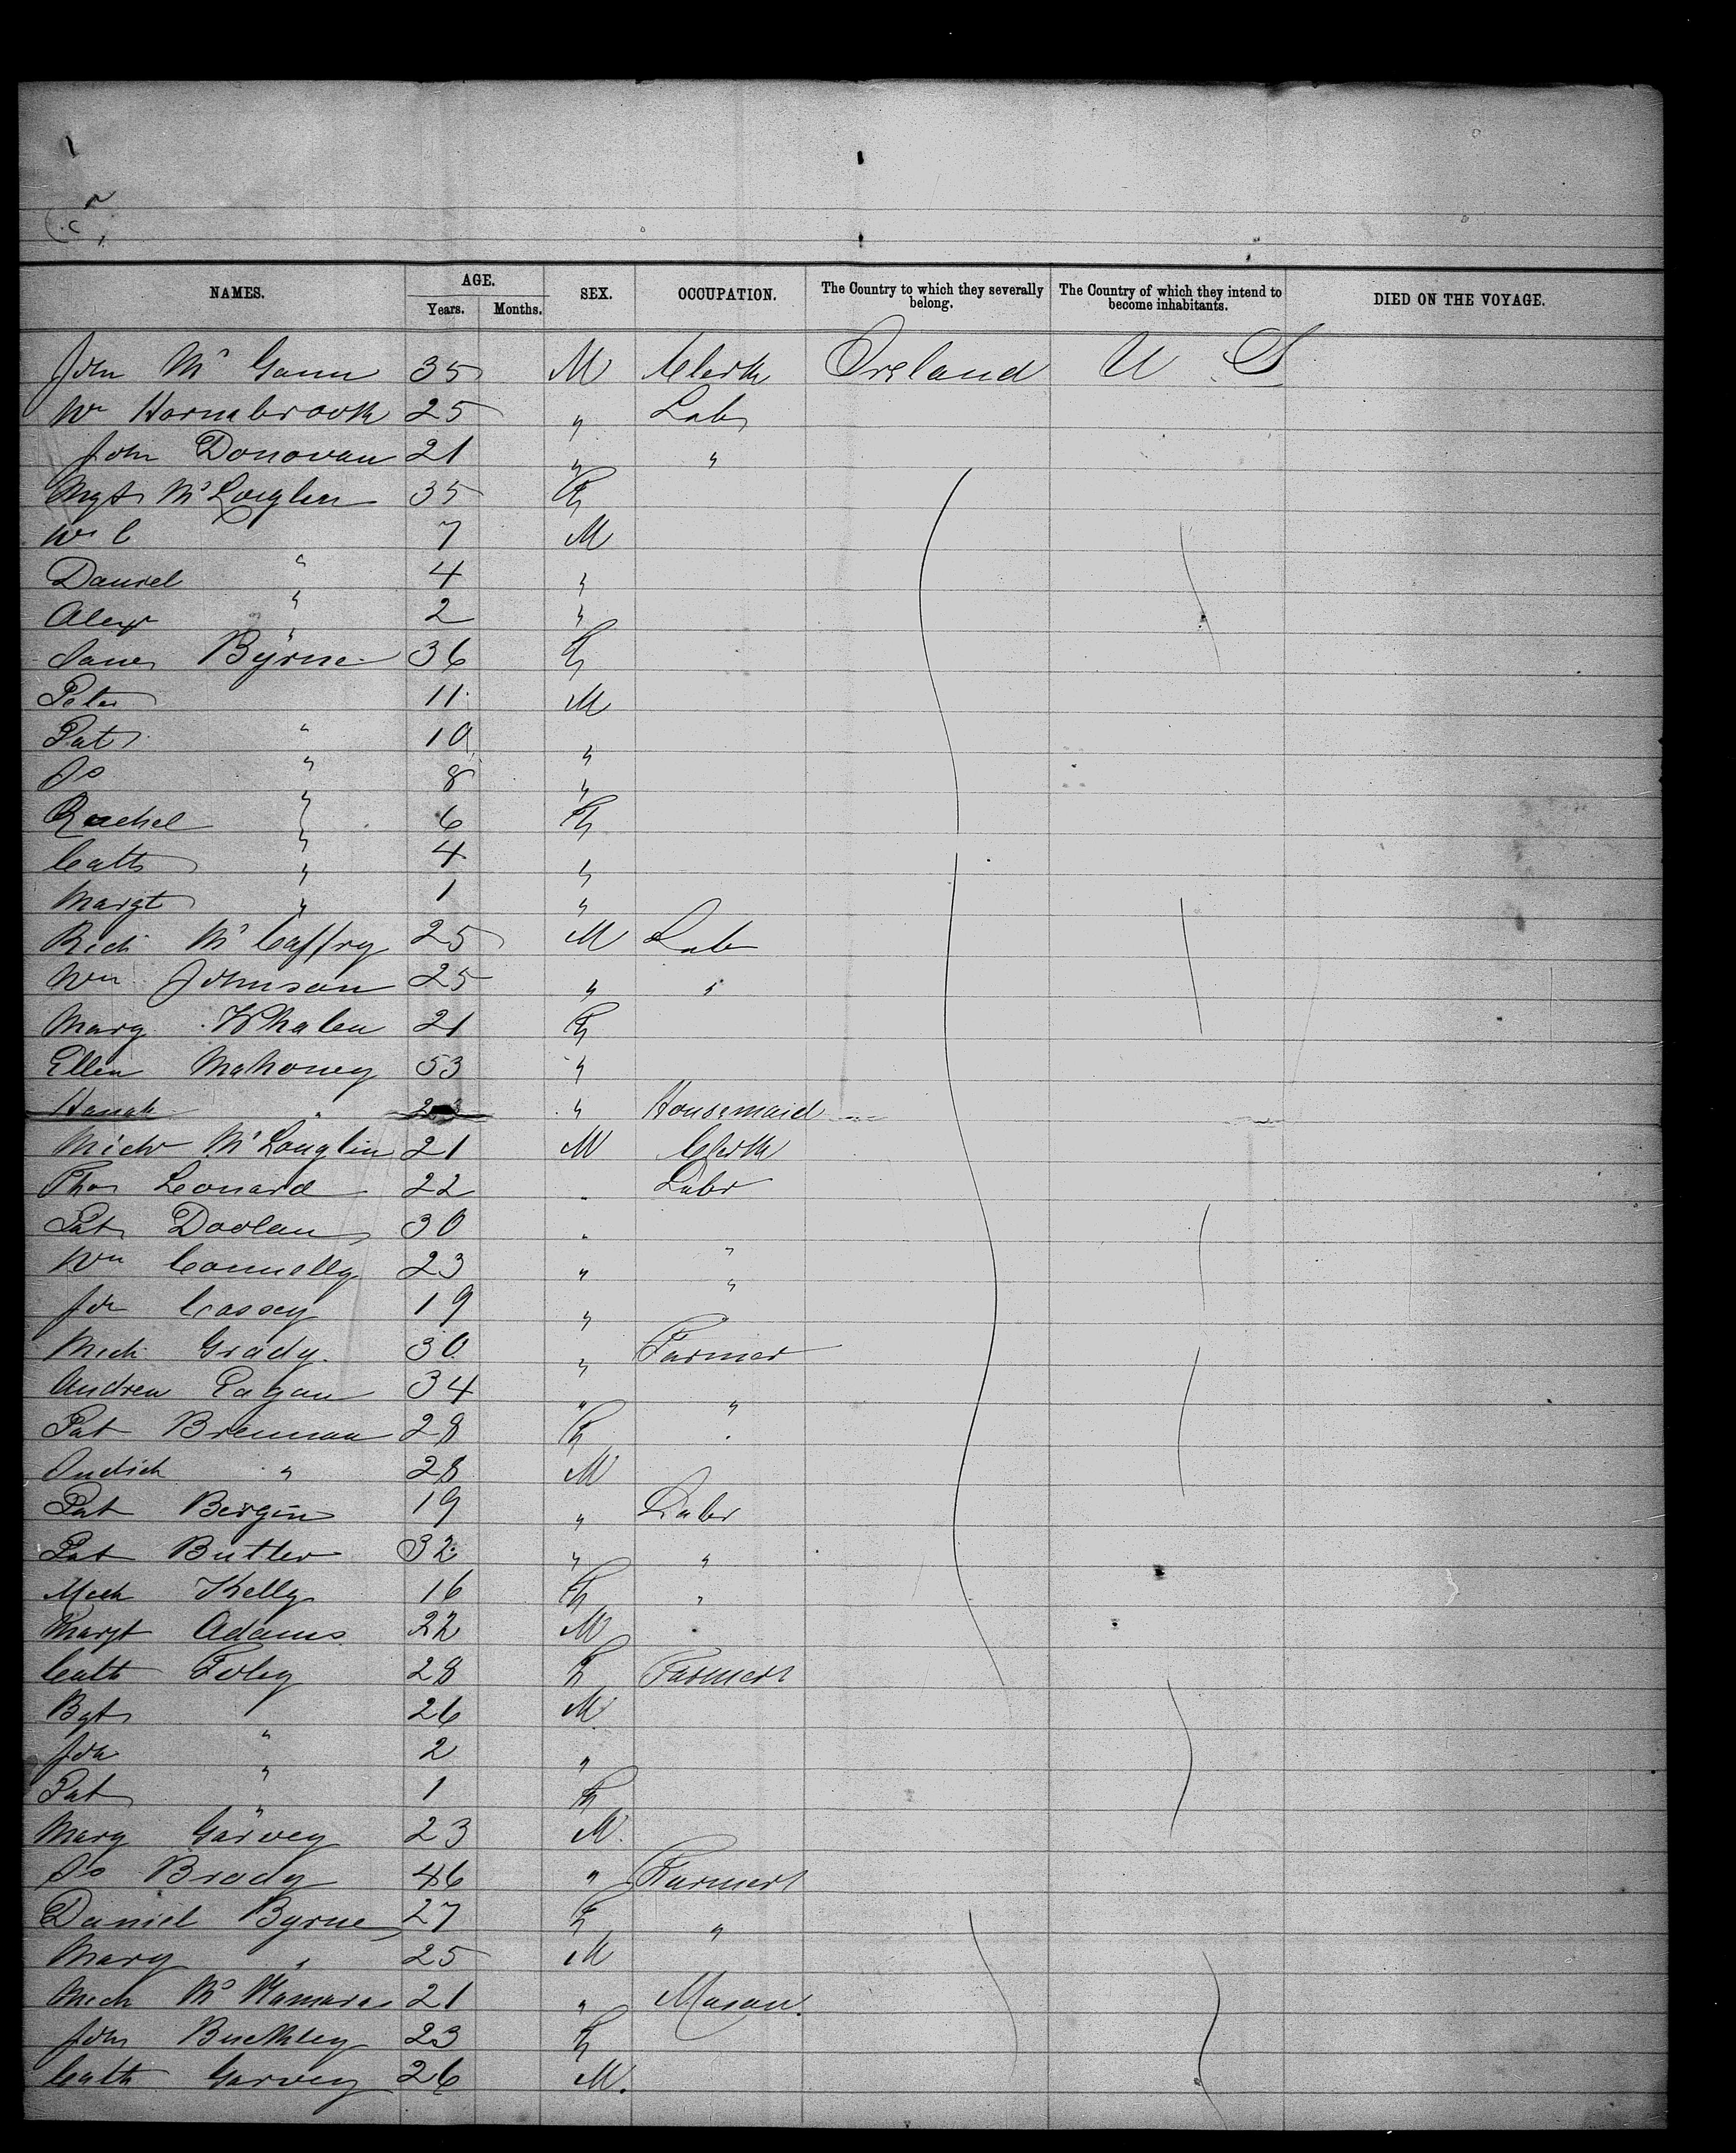 NAMES. AGE. SEX. OCCUPATION. The Country to which they severally belong. The Country of which they intend to become inhabitants. DIED ON THE VOYAGE.
Years. Months.
John Mc Gann 35 M Clerk Ireland U S
Wm Hornabrook 25 " Labr
John Donovan 21 " "
Mgt McLouglin 35 F
Wm C 7 M
Daniel " 4 "
Alex " 2 "
Jane Byrne 36 F
Peter 11 M
Pat " 10 "
Jo " 8 "
Rachel " 6 F
Cath " 4 "
Margt " 1 "
Rich Mc Caffry 25 M Labr
Wm Johnson 25 " "
Mary Whalen 21 F
Ellen Mahoney 53 "
Hanah " " Housemaid
Michl McLouglin 21 M Clerk
Thos Leonard 22 " Labr
Pat Doolan 30 " "
Wm Connelly 23 " "
Jon Cassey 19 "
Mich Grady 30 " Farmer
Andrew Eagan 34 " "
Pat Brennan 28 F "
Judich " 28 M
Pat Bergin 19 " Labr
Pat Butler 32 " "
Mich Kelly 16 F "
Margt Adams 22 M
Cath Foley 28 F Farmer
Bgt 26 M
Jon " 2 "
Pat " 1 F
Mary Garvey 23 M
Jo Brady 46 " Farmer
Daniel Byrne 27 F "
Mary " 25 M
Mich Mc Namara 21 " Mason.
John Buckley 23 F
Cath Garvey 26 M.